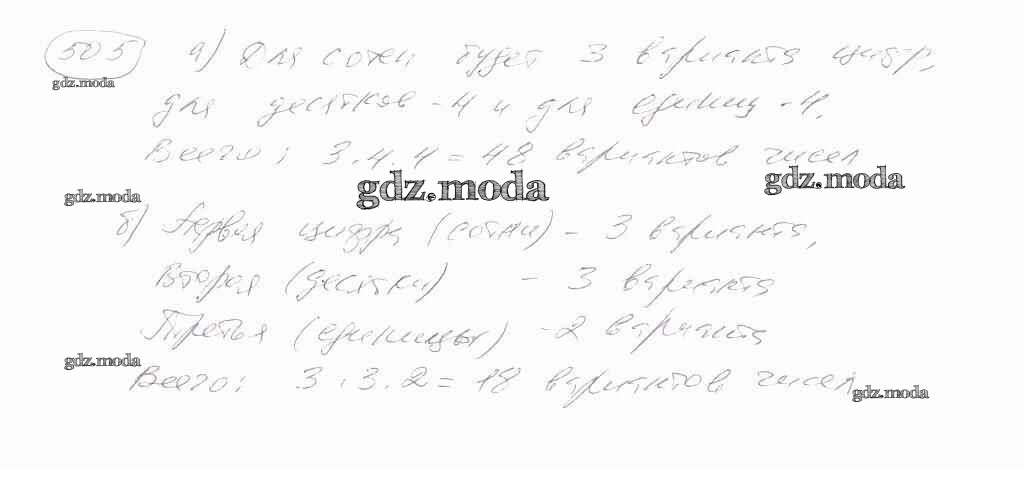 505 а) Для сотен будет 3 варианта цифр,
gdz.moda
для десятков - 4 и для единиц - 4.
Всего: 3 · 4 · 4 = 48 вариантов чисел
gdz.moda gdz.moda gdz.moda
б) Первая цифра (сотни) - 3 варианта,
Вторая (десятки) - 3 варианта
Третья (единицы) - 2 варианта
gdz.moda
Всего: 3 · 3 · 2 = 18 вариантов чисел
gdz.moda